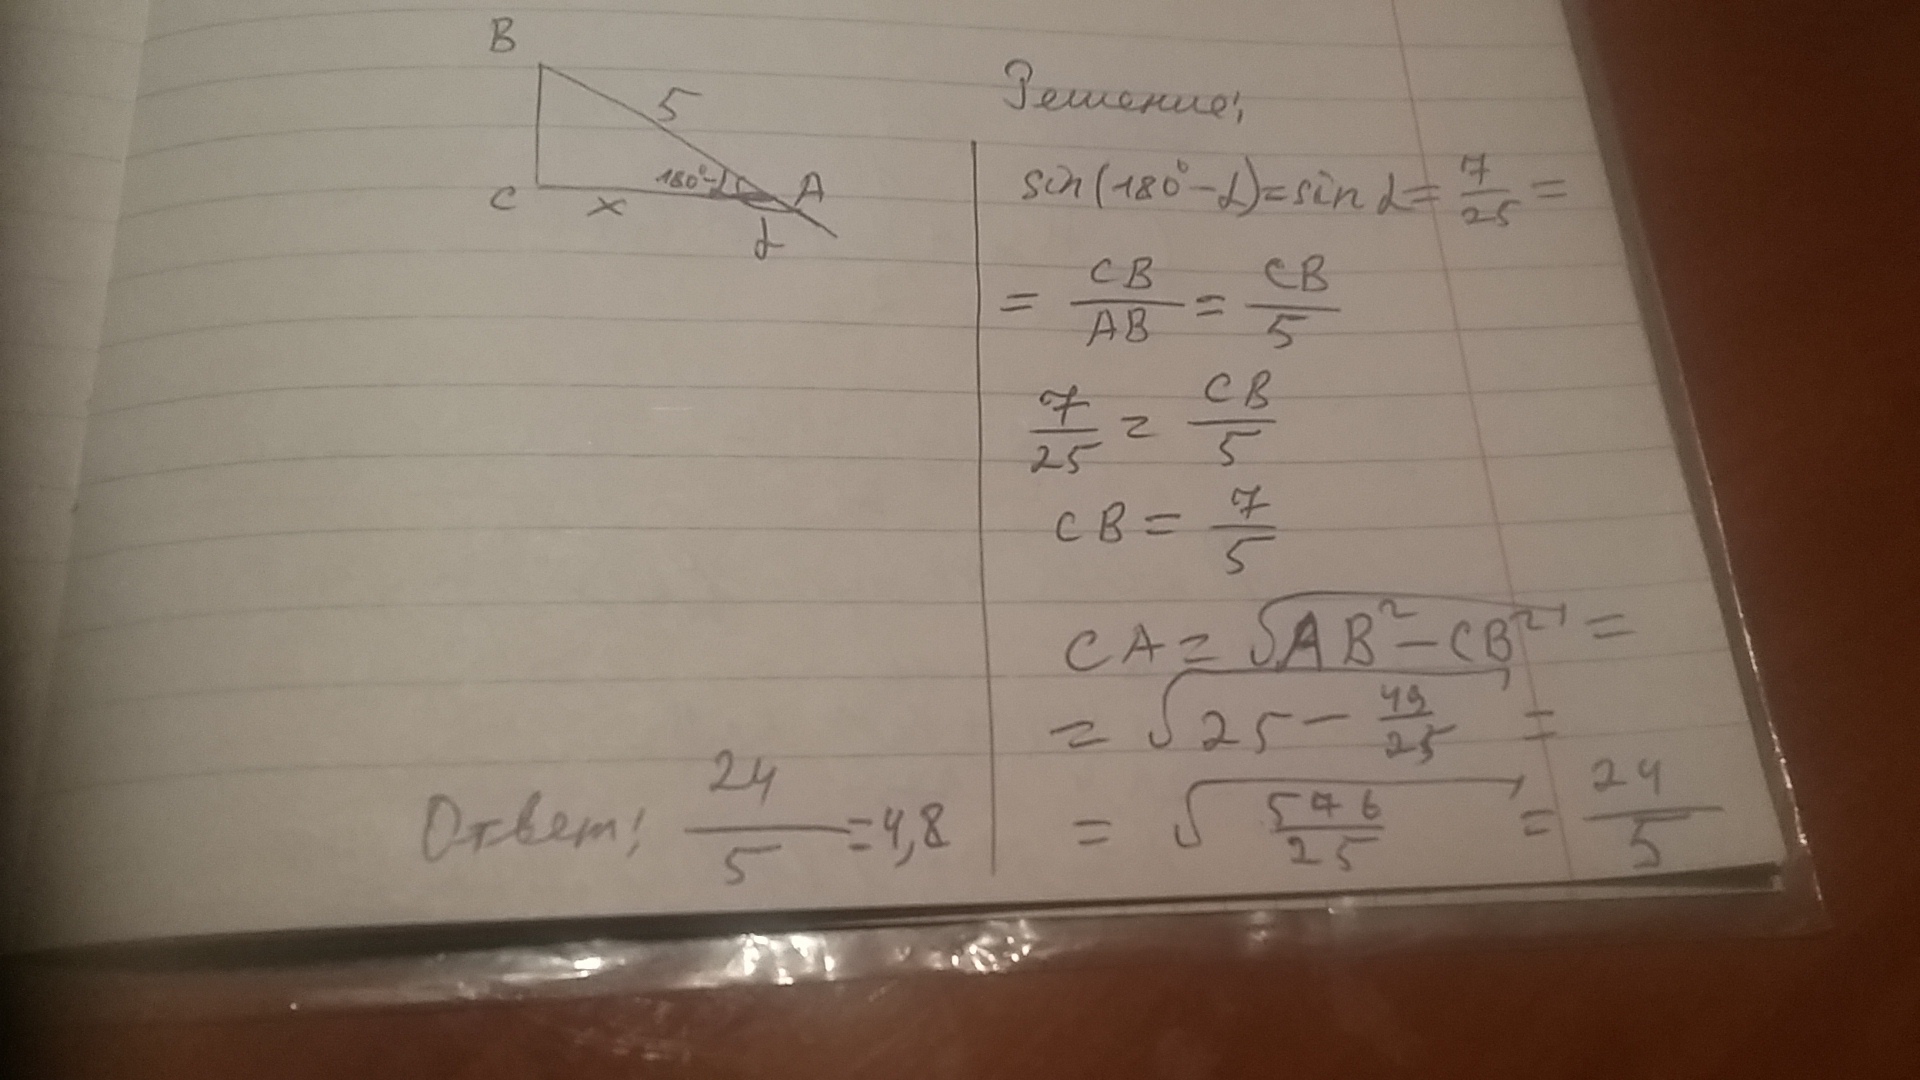 B
5
180°-α
A
C
x
α
Решение:
sin(180°-α)=sin α= 7/25 =
= CB/AB = CB/5
7/25 = CB/5
CB = 7/5
CA = √AB²-CB² =
= √25 - 49/25 =
= √576/25 = 24/5
Ответ: 24/5 =4,8